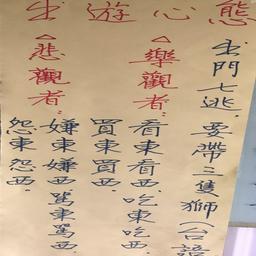 出遊心態
出門七逃,要帶三隻獅(台語
△樂觀者:
看東看西、吃東吃西、
買東買西
△悲觀者:
嫌東嫌西、罵東罵西、
怨東怨西.